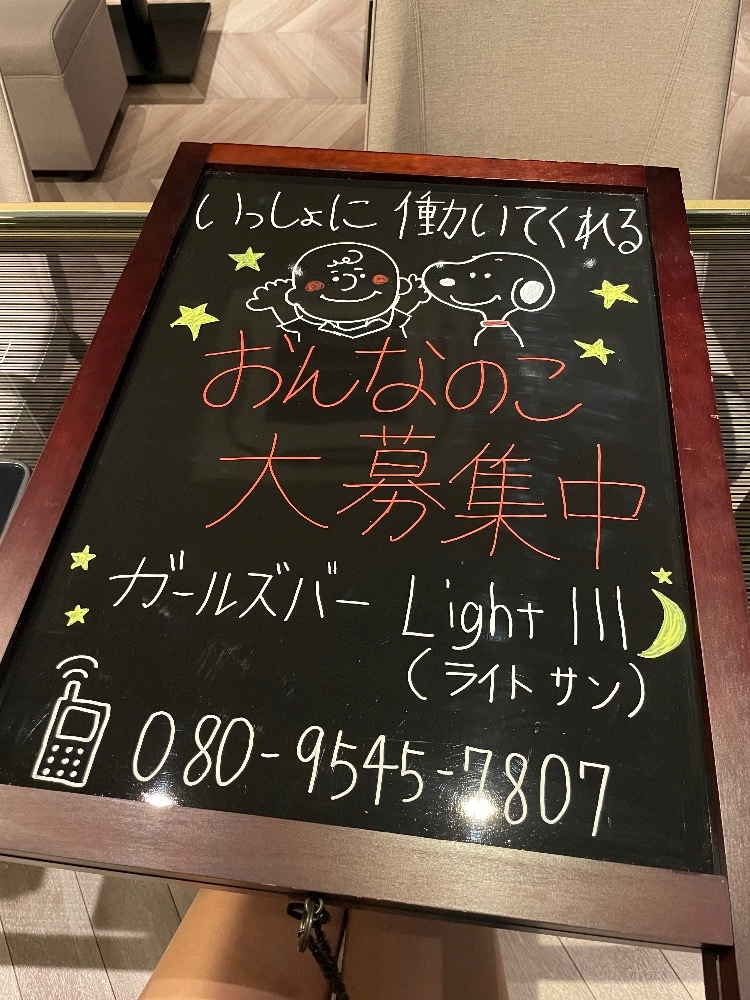 いっしょに 働いてくれる
おんなのこ
大募集中
ガールズバー Light III
(ライト サン)
080-9545-7807